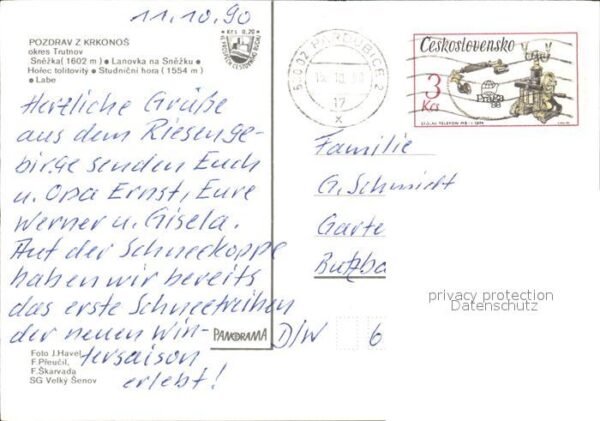 11.10.90
POZDRAV Z KRKONOŠ
okres Trutnov
Sněžka (1602 m) • Lanovka na Sněžku •
Hořec tolitovitý • Studniční hora (1554 m)
• Labe
Kčs 0,20
Herzliche Grüße
aus dem Riesenge-
birge senden Euch
u. Opa Ernst, Eure
Werner u. Gisela.
Auf der Schneekoppe
haben wir bereits
das erste Schneetreiben
der neuen Win-
tersaison
erlebt!
Foto J. Havel,
F. Přeučil,
F. Škarvada
SG Velký Šenov
PANORAMA
PARDUBICE 2
17
x
Československo
3
Kčs
Familie
G. Schmidt
Garte
Butzba
D/W 6
privacy protection
Datenschutz